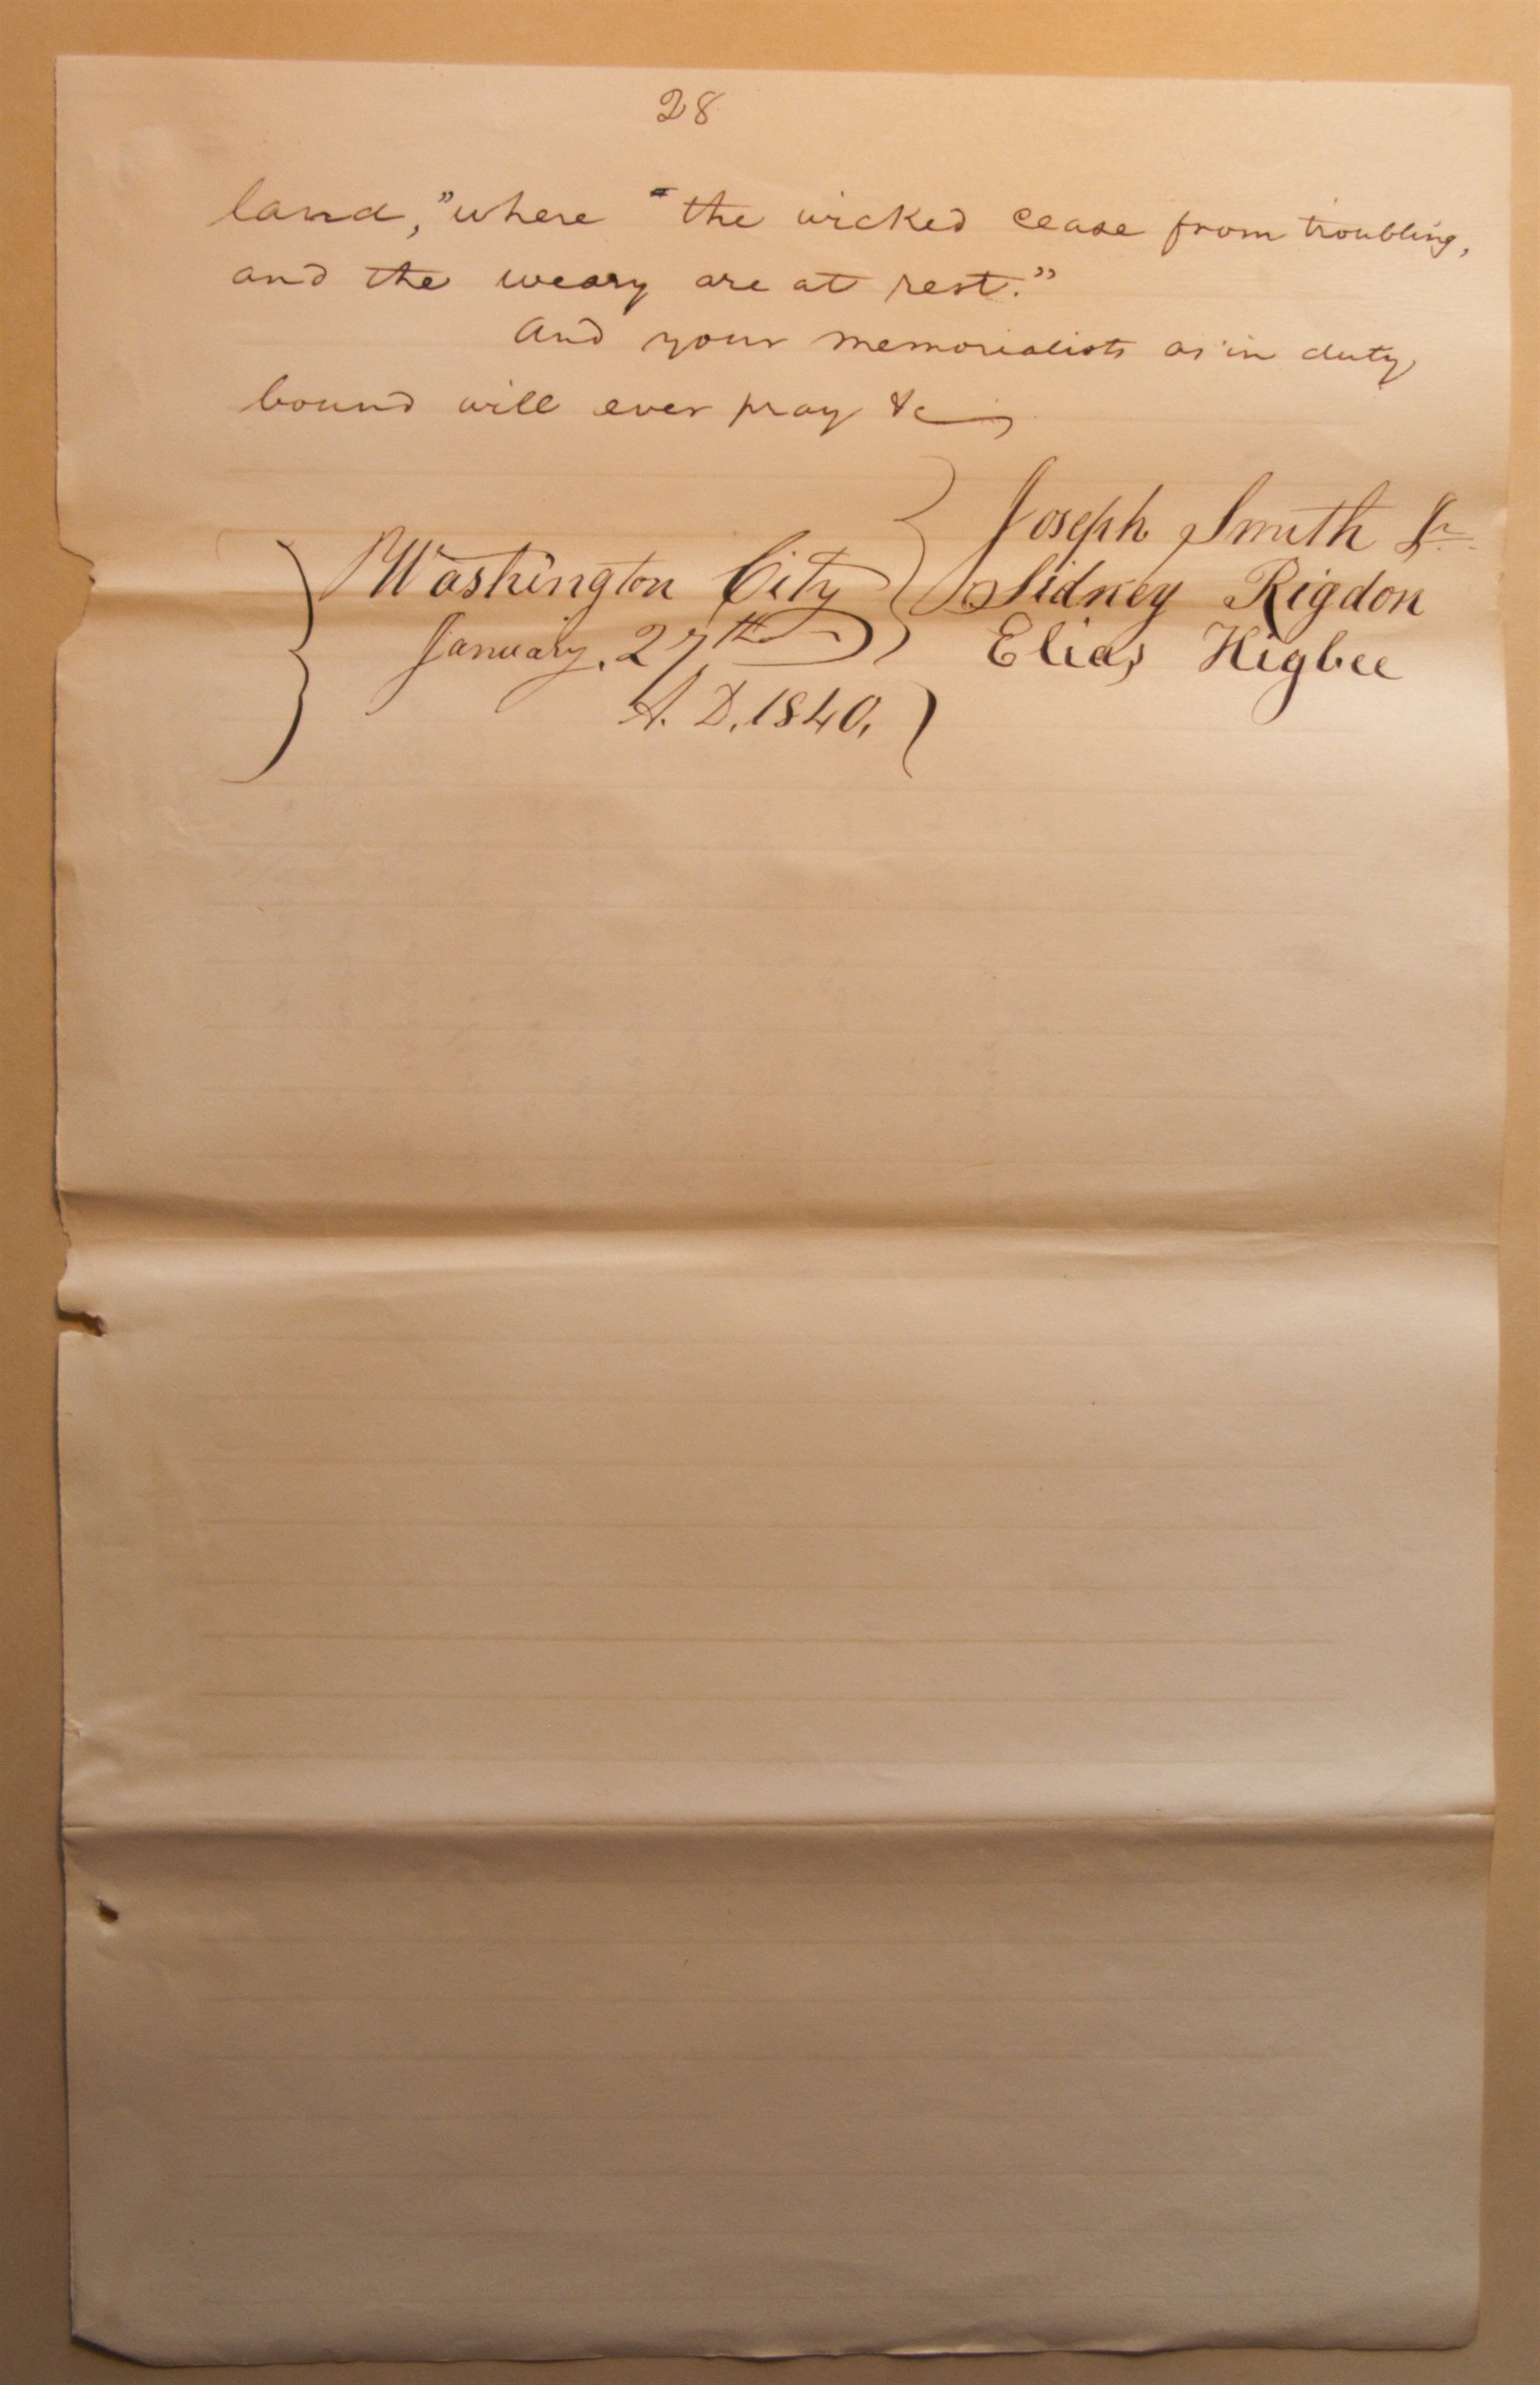 28
land," where "the wicked cease from troubling,
and the weary are at rest."
And your memorialists as in duty
bound will ever pray &c
Joseph Smith Jr.
Washington City Sidney Rigdon
January, 27th Elias Higbee
A. D. 1840.